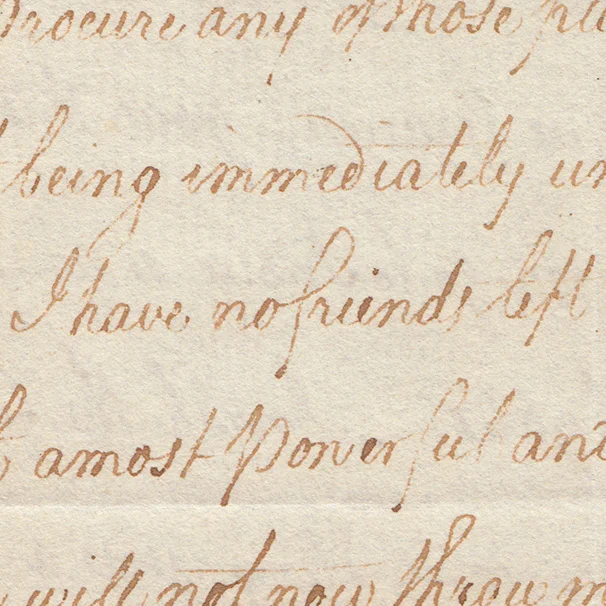 Procure any of those
being immediately
I have no friends left
a most Powerful and
will not now throw